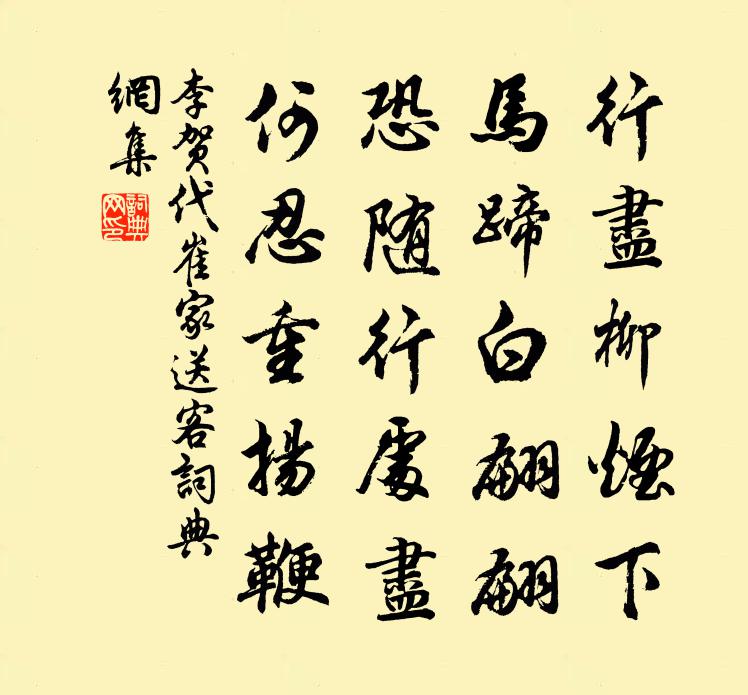 行盡柳煙下
馬蹄白翩翩
恐随行處盡
何忍重揚鞭
李贺代崔家送客詞典
網集
詞典
网印